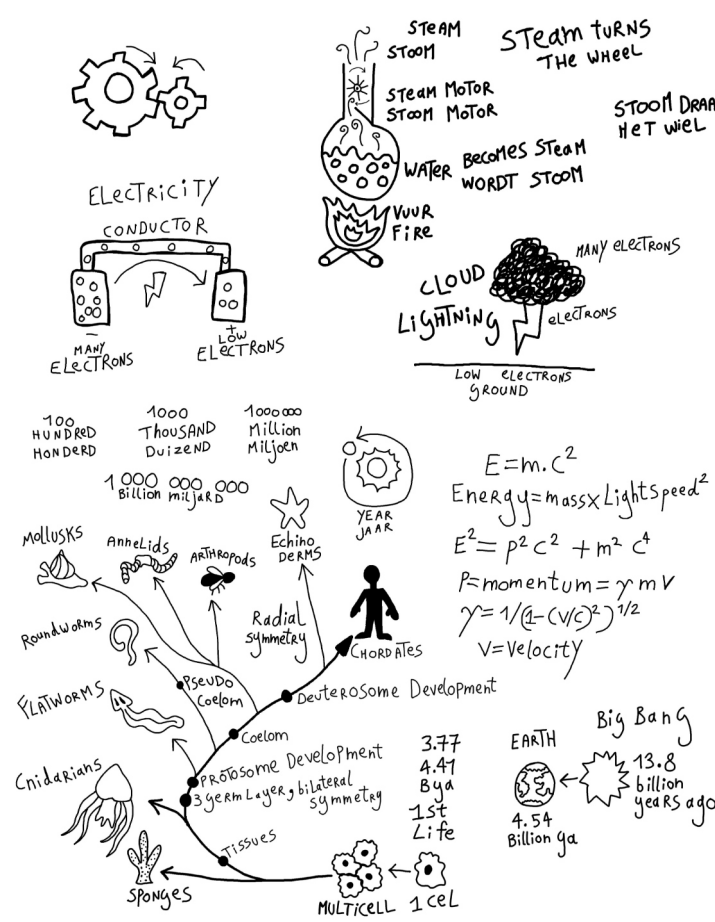 STEAM
STOOM
STEAM TURNS
THE WHEEL
STEAM MOTOR
STOOM MOTOR
STOOM DRAA
HET WIEL
WATER BECOMES STEAM
WORDT STOOM
VUUR
FIRE
ELECTRICITY
CONDUCTOR
−
MANY
ELECTRONS
+
LOW
ELECTRONS
CLOUD
MANY ELECTRONS
LIGHTNING
ELECTRONS
LOW ELECTRONS
GROUND
100
HUNDRED
HONDERD
1000
THOUSAND
DUIZEND
1000000
Million
Miljoen
1 000 000 000
Billion miljARD
YEAR
JAAR
E=m.c²
Energy=massxLightspeed²
E²= p²c² +m² c⁴
P=momentum=γ m V
γ=1/(1-(v/c)²)^1/2
V=Velocity
MOLLUSKS
Annelids
ARTHROPODS
Echino
DERMS
Radial
symmetry
CHORDATES
Roundworms
PSEUDO
Coelom
Deuterosome Development
FLATWORMS
Coelom
PROTOSOME Development
3 germ Layer, bilateral
symmetry
Cnidarians
Tissues
SPONGES
MULTICELL
1 CEL
3.77
4.41
Bya
1st
Life
EARTH
4.54
Billion ya
Big Bang
13.8
billion
years ago